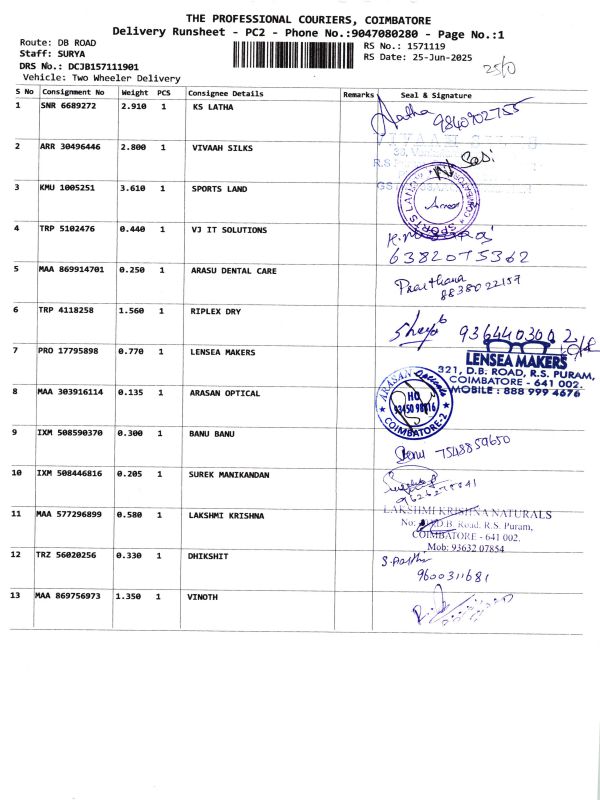 THE PROFESSIONAL COURIERS, COIMBATORE
Delivery Runsheet - PC2 - Phone No.:9047080280 - Page No.:1
Route: DB ROAD
RS No.: 1571119
Staff: SURYA
RS Date: 25-Jun-2025
DRS No.: DCJB157111901
Vehicle: Two Wheeler Delivery
S No Consignment No Weight PCS Consignee Details Remarks Seal & Signature
1 SNR 6689272 2.910 1 KS LATHA Latha 9840902755
2 ARR 30496446 2.800 1 VIVAAH SILKS Sasi
3 KMU 1005251 3.610 1 SPORTS LAND SPORTS LAND
4 TRP 5102476 0.440 1 VJ IT SOLUTIONS
6382075362
5 MAA 869914701 0.250 1 ARASU DENTAL CARE Prarthana
8838022157
6 TRP 4118258 1.560 1 RIPLEX DRY 9364403002
7 PRO 17795898 0.770 1 LENSEA MAKERS LENSEA MAKERS
321, D.B. ROAD, R.S. PURAM,
COIMBATORE - 641 002.
MOBILE : 888 999 4676
8 MAA 303916114 0.135 1 ARASAN OPTICAL ARASAN Opticals
HO
COIMBATORE-2
9 IXM 508590370 0.300 1 BANU BANU Banu 7548859650
10 IXM 508446816 0.205 1 SUREK MANIKANDAN
11 MAA 577296899 0.580 1 LAKSHMI KRISHNA LAKSHMI KRISHNA NATURALS
D.B. Road. R.S. Puram,
COIMBATORE - 641 002.
Mob: 93632 07854
12 TRZ 56020256 0.330 1 DHIKSHIT
9600311681
13 MAA 869756973 1.350 1 VINOTH